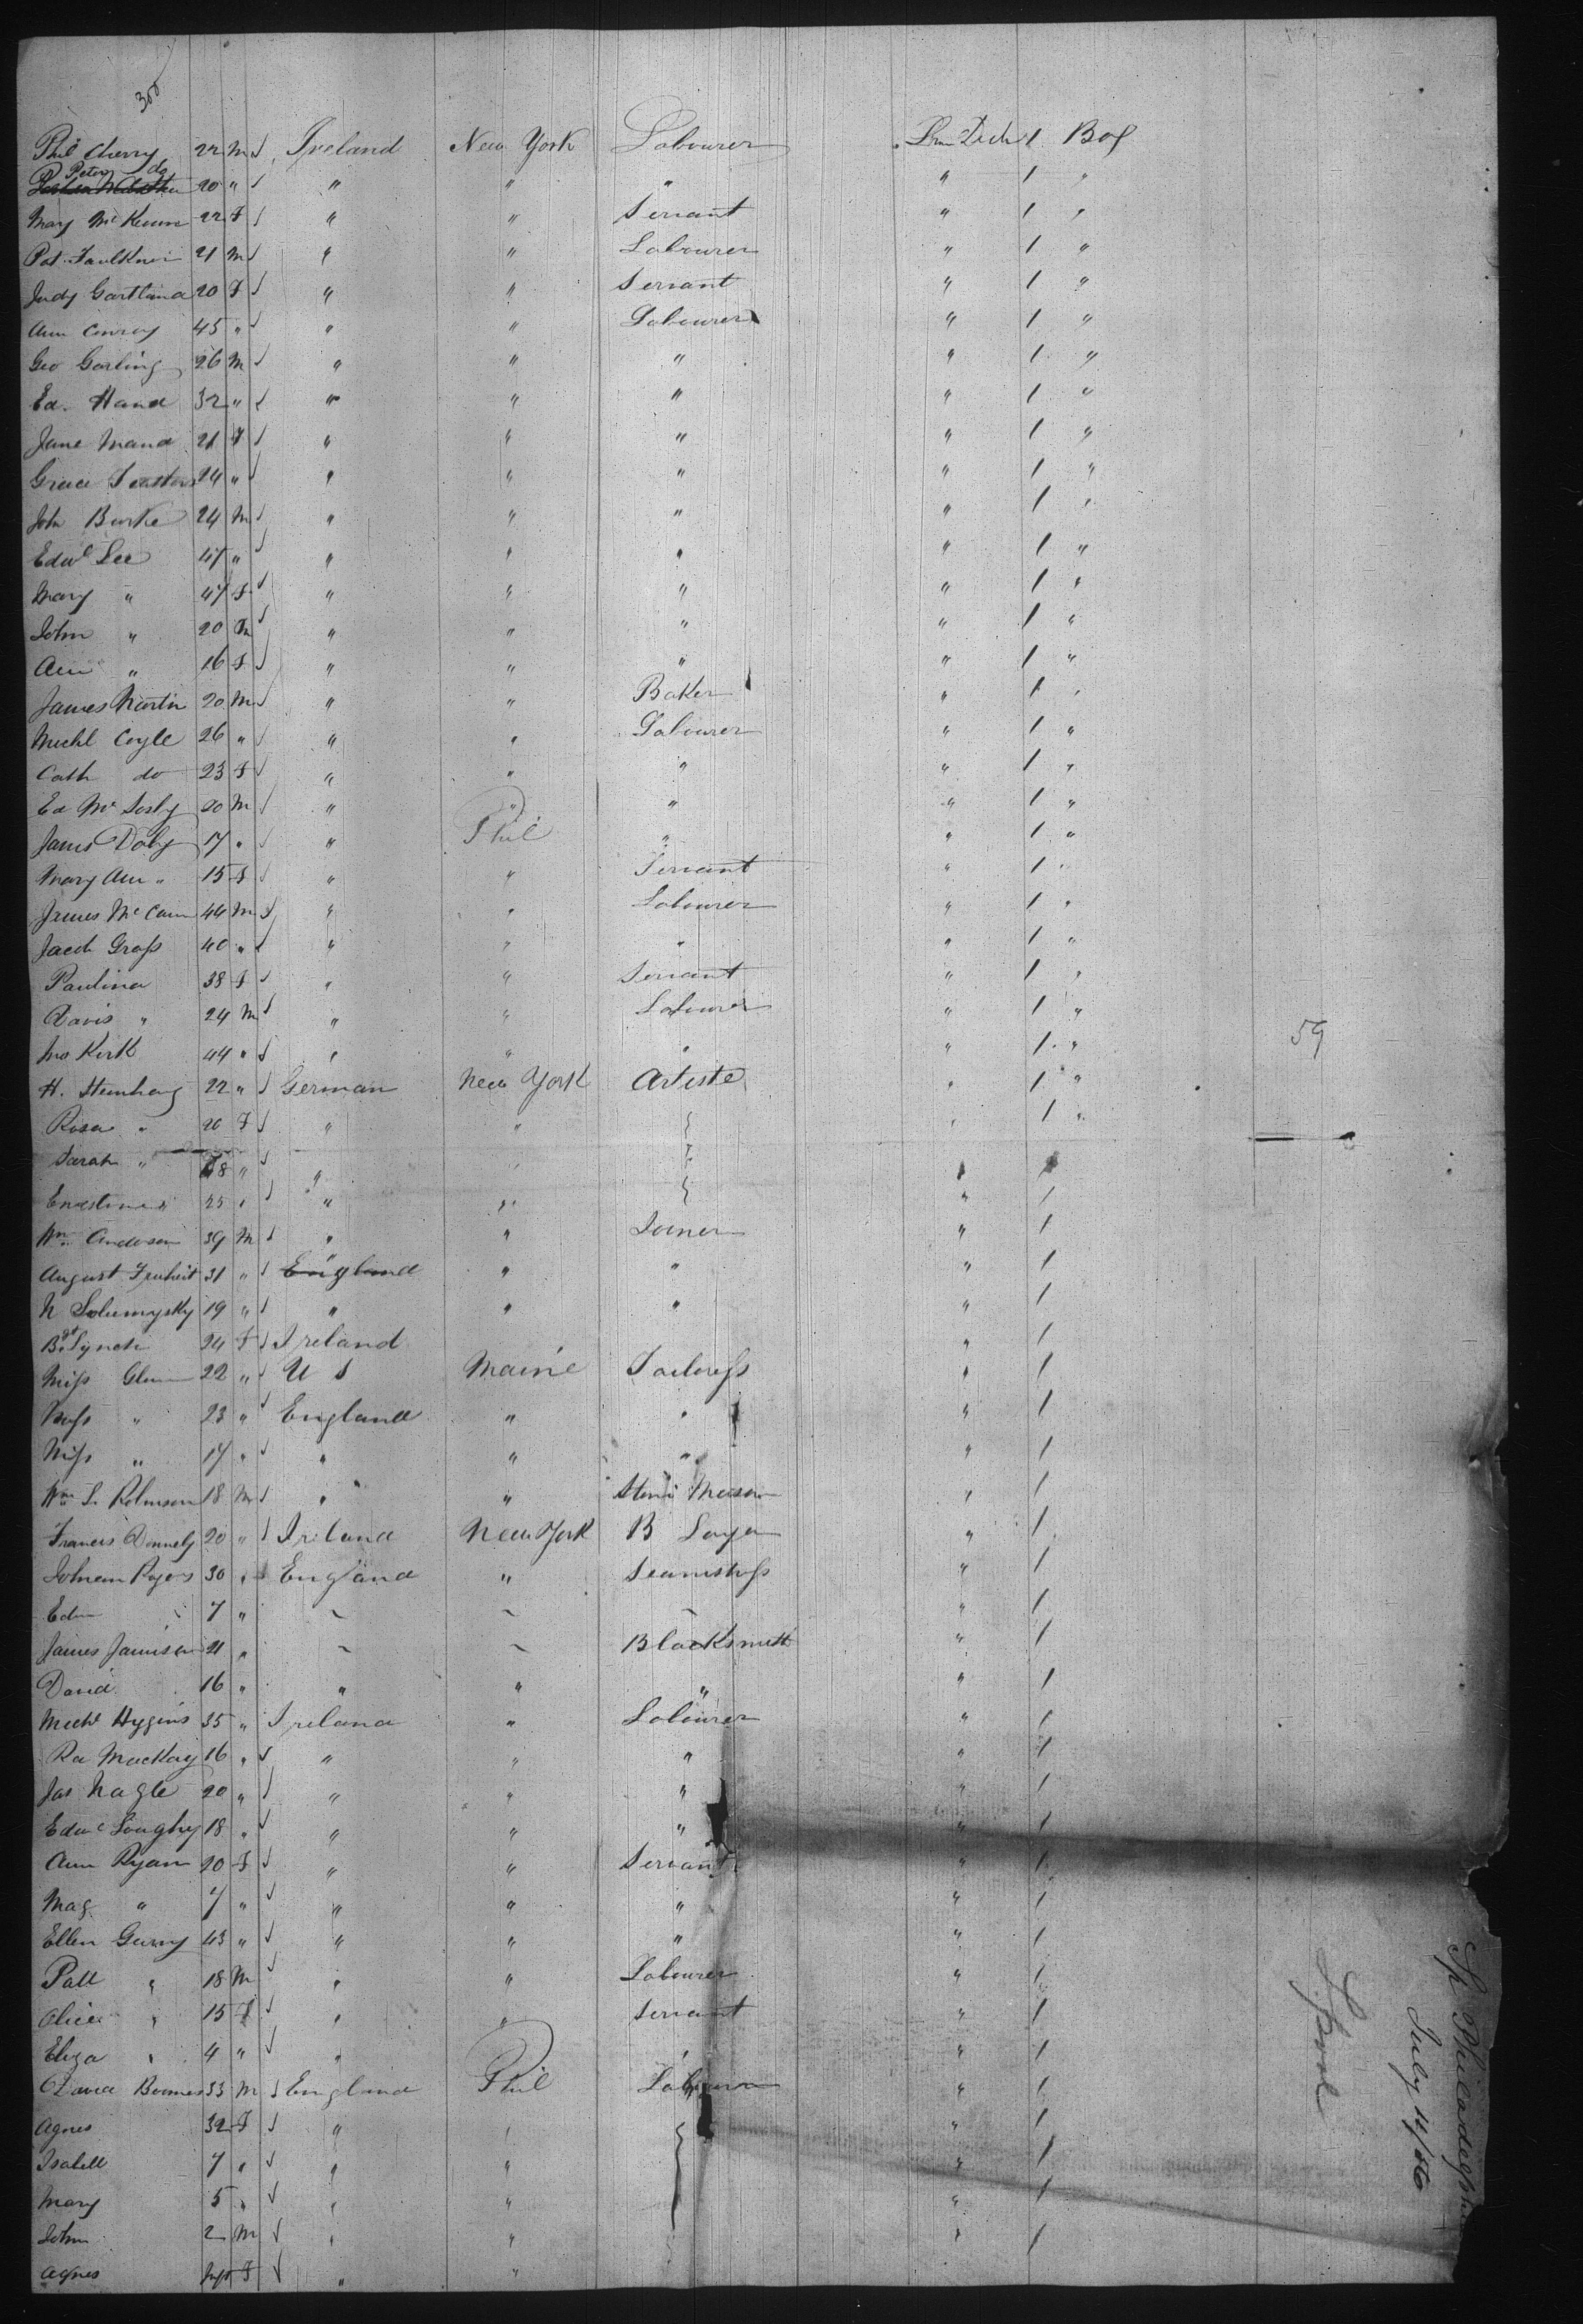 300
Phil Cherry 22 M Ireland New York Labourer 1 Box
Peter do 20 " " " " " 1 "
Mary McKeown 22 F " " Servant " 1 "
Pat. Faulkner 21 M " " Labourer " 1 "
Judy Gartland 20 F " " Servant " 1 "
Ann Conroy 45 " " " Labourer " 1 "
Geo Garling 26 M " " " " 1 "
Ed. Hand 32 " " " " " 1 "
Jane Hand 21 F " " " " 1 "
Grace 24 " " " " " 1 "
John Burke 24 M " " " " 1 "
Edwd Lee 47 " " " " " 1 "
Mary " 47 F " " " " 1 "
John " 20 M " " " " 1 "
Ann " 16 F " " " " 1 "
James Martin 20 M " " Baker " 1 "
Michl Coyle 26 " " " Labourer " 1 "
Cath do 23 F " " " " 1 "
Ed 20 M " " " " 1 "
James Doby 17 " " Phil " " 1 "
Mary Ann " 15 F " " Servant " 1 "
James McCann 44 M " " Labourer " 1 "
Jacob Gross 40 " " " " " 1 "
Paulina 38 F " " Servant " 1 "
Davis " 24 M " " Labourer " 1 "
Jno Kirk 44 " " " " " 1 "
59
H. 22 " German New York Artiste " 1 "
Rosa " 20 F " " " 1 "
Sarah " 18 " " " " 1
Ernestine " 25 " " " " 1
Wm Anderson 39 M " " Joiner " 1
August 31 " England " " " 1
N 19 " " " " " 1
Bgt Lynch 24 F Ireland " 1
Miss Glenn 22 " U S Maine Tailoress " 1
Miss " 23 " England " " " 1
Miss " 17 " " " " " 1
Wm S. Robinson 18 M " " Stone Mason " 1
Francis Donnely 20 " Ireland New York B Layer " 1
Rogers 30 " England " Seamstress " 1
Edw 7 " " " " 1
James Jamison 21 " " " Blacksmith " 1
David 16 " " " " " 1
Michl Hygins 35 " Ireland " Labourer " 1
MacKay 16 " " " " " 1
Jas Nagle 20 " " " " " 1
Edwd Loughy 18 " " " " " 1
Ann Ryan 20 F " " Servant " 1
Mag " 7 " " " " " 1
Ellen Gurry 43 " " " " " 1
Patt " 18 M " " Labourer " 1
Alice " 15 F " " Servant " 1
Eliza " 4 " " " " " 1
David 33 M England Phil Labourer " 1
Agnes 32 F " " " 1
Isabell 7 " " " " 1
Mary 5 " " " " 1
John 2 M " " " 1
Agnes Inft F " "
Sp Philadelphia
July 14/86
L.pool